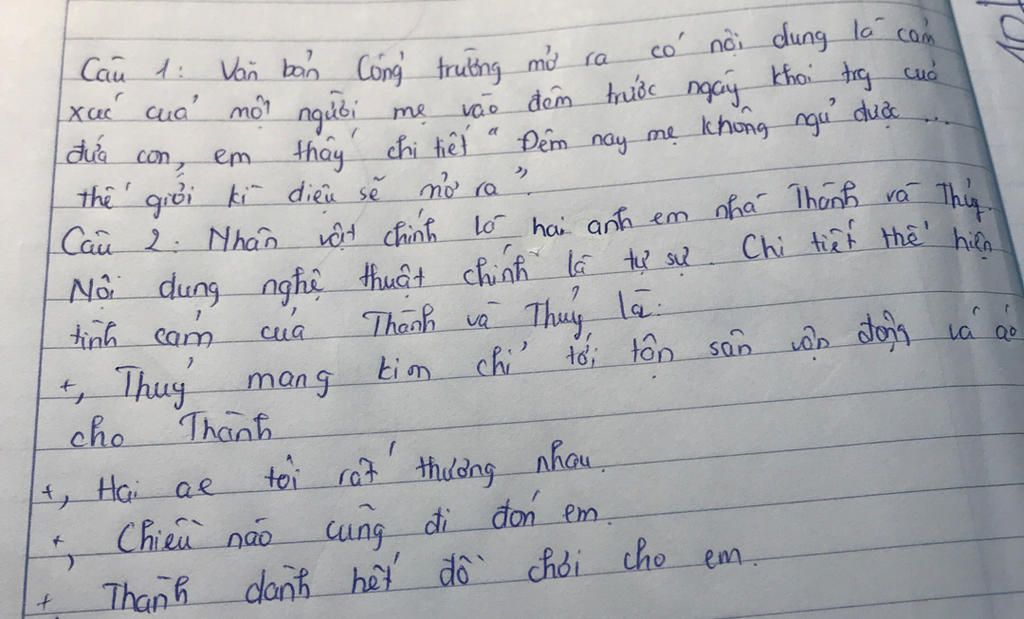 Câu 1: Văn bản Cổng trường mở ra có nội dung là cảm
xúc của một người mẹ vào đêm trước ngày khai trg của
đứa con, em thấy chi tiết "Đêm nay mẹ không ngủ được ...
thế giới kì diệu sẽ mở ra".
Câu 2: Nhân vật chính là hai anh em nhà Thành và Thủy.
Nội dung nghệ thuật chính là tự sự. Chi tiết thể hiện
tình cảm của Thành và Thuỷ là:
+, Thuỷ mang kim chỉ tới tận sân vận động vá áo
cho Thành
+, Hai ae tôi rất thương nhau.
+, Chiều nào cũng đi đón em.
+ Thành dành hết đồ chơi cho em.